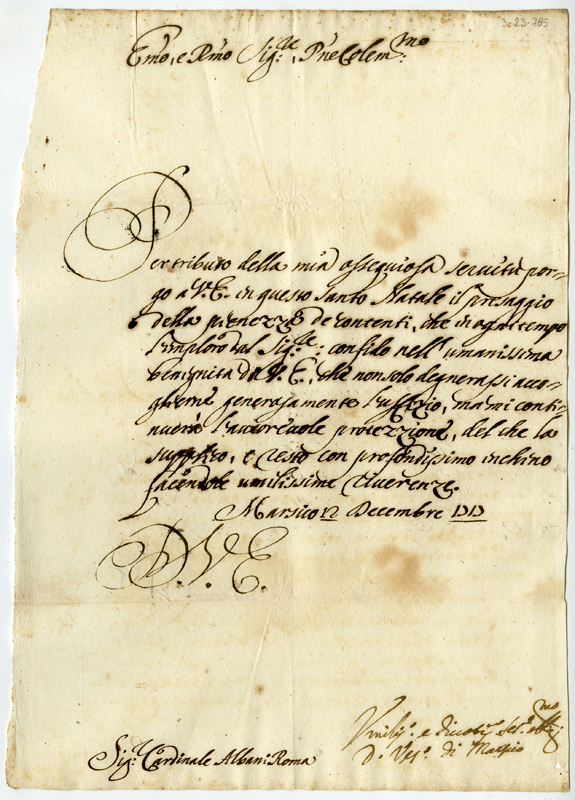 3-23-785
Emo, e Rmo Sig.re, Pne Colem.mo
Per tributo della mia ossequiosa servitù por-
go a V.E. in questo santo Natale il presaggio
della pienezze de contenti, che in ogni tempo
l'imploro dal Sig.re: confido nell'umanissima
benignità di V.E., che non solo degnerassi acco-
glierne generosamente l'uffizio, ma mi conti-
nuerà l'autorevole protezzione, del che la
supplico, e resto con profondissimo inchino
facendole umilissime riverenze.
Marsico 12 Decembre 1713
D.V.E.
Umiliss.o e divotiss.o ser.e obb.mo
Sig.r Cardinale Albani Roma
Vesc.o di Marsico